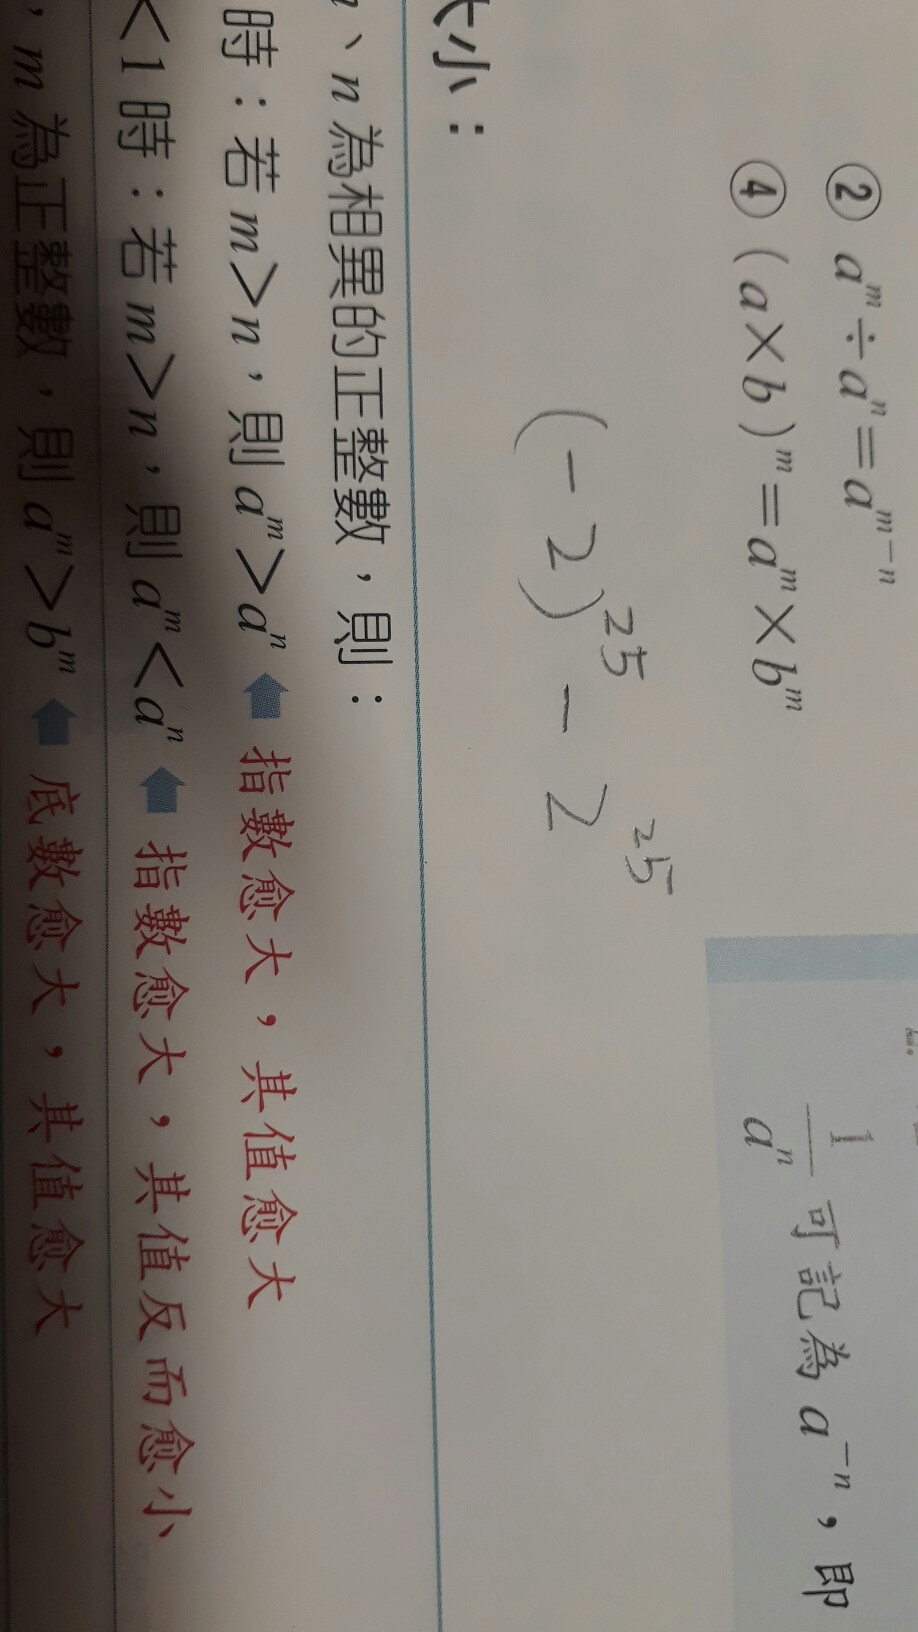 ② aᵐ÷aⁿ=aᵐ⁻ⁿ
④ (a×b)ᵐ=aᵐ×bᵐ
1/aⁿ 可記為 a⁻ⁿ，即
(-2)²⁵-2²⁵
大小：
、n 為相異的正整數，則：
時：若 m>n，則 aᵐ>aⁿ ⬅ 指數愈大，其值愈大
<1 時：若 m>n，則 aᵐ<aⁿ ⬅ 指數愈大，其值反而愈小
，m 為正整數，則 aᵐ>bᵐ ⬅ 底數愈大，其值愈大